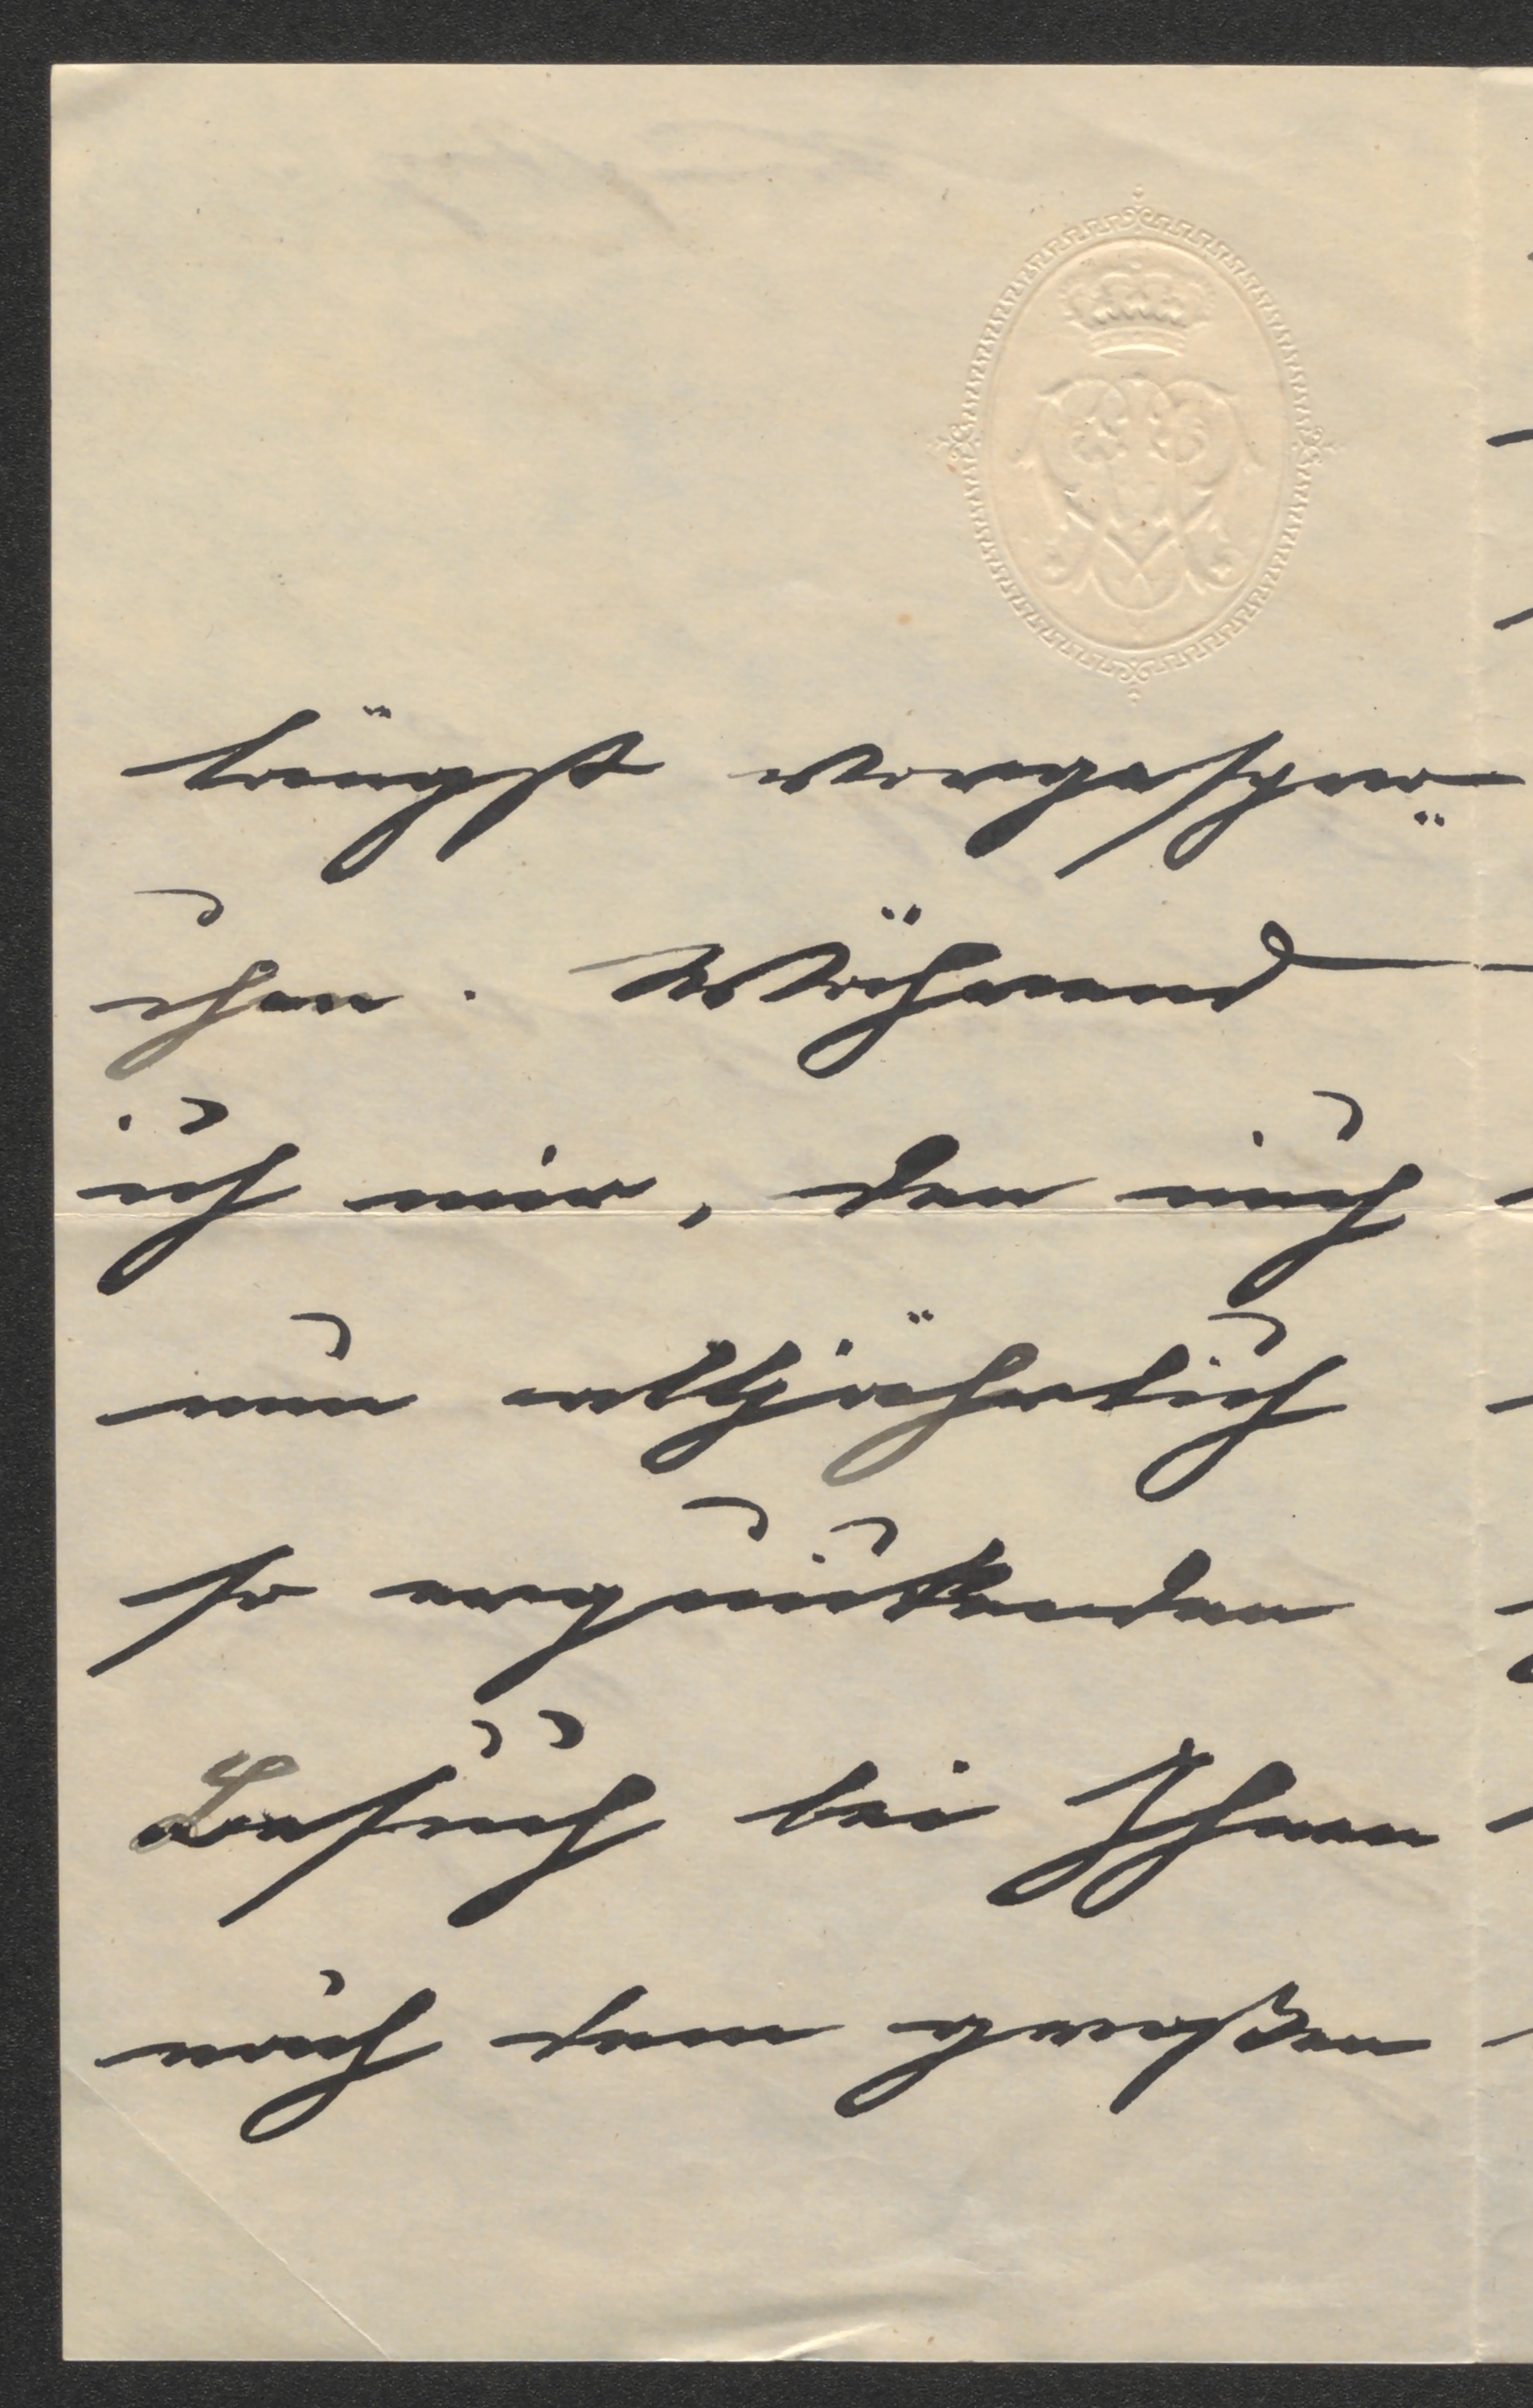 längst vorgespro-
chen. Während
ich mir, den mich
nun alljährlich
so erquickenden
Besuch bei Ihnen
nach dem großen